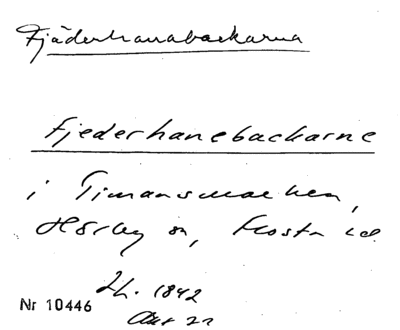 Fjäderhanabackarna
Fjederhanebackarne
i Timansmarken,
Hörby sn, Frosta hd.
Lh. 1842
Akt 22
Nr 10446